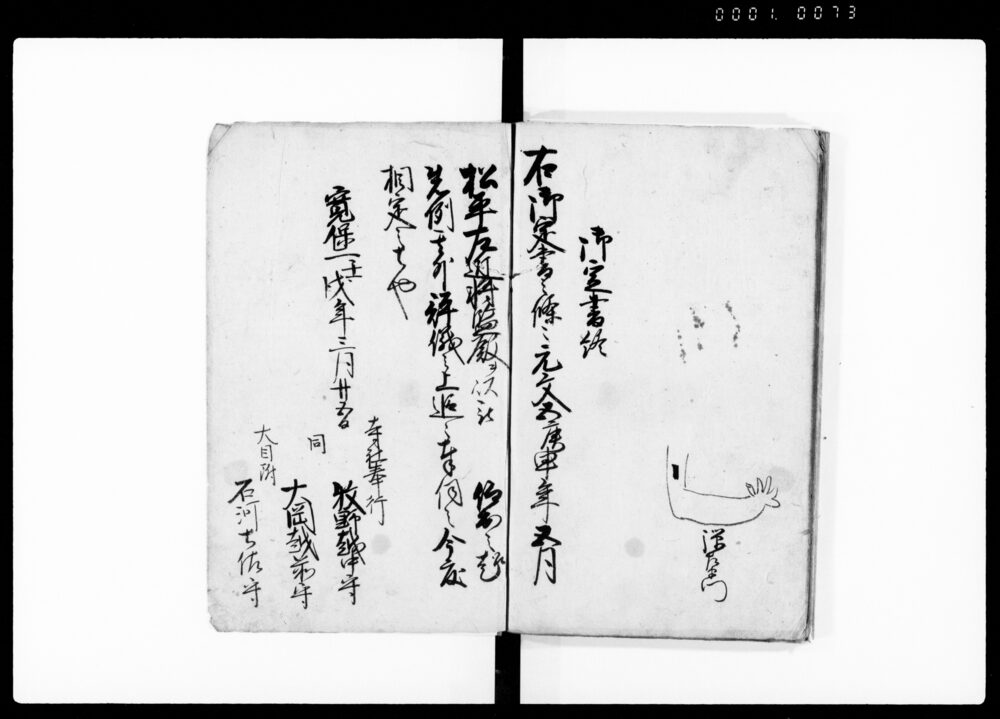 0001. 0073
御定書終
右御定書之條々元文五庚申年五月
松平左近将監殿
先例其外評儀之上追々奉伺之今度
相定之者也
寛保二壬戌年三月廿五日
寺社奉行
牧野越中守
同
大岡越前守
大目附
石河土佐守